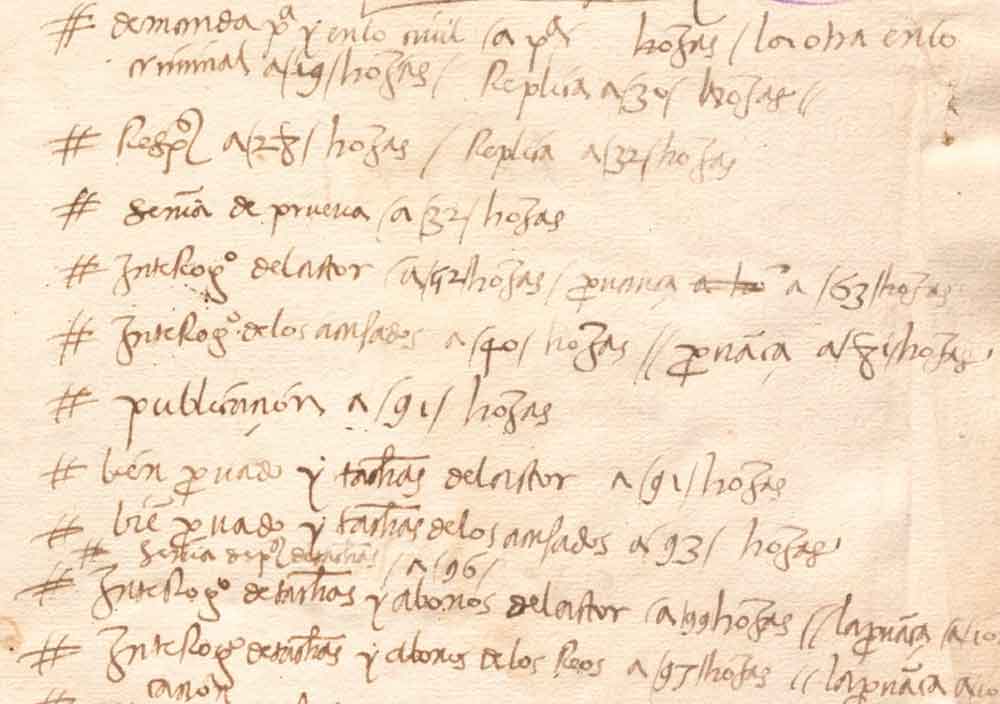 # demanda pª y en lo civil /a pª hojas / la otra en lo
criminal a /19/ hojas / Replica a /30/ hojas //
# Respᵒ a /28/ hojas / Replica a /32/ hojas
# senᵃ de prueva /a /32/ hojas
# InteRogᵒ del actor /a /52/ hojas / provança a /63/ hojas
# InteRogᵒ de los acusados a /40/ hojas // provãça a /81/ hojas
# publicacion a /91/ hojas
# bien provado y tachas del actor a /91/ hojas
# biẽ provado y tachas de los acusados a /93/ hojas
# senᵃ de tachas / a /96/
# InteRogᵒ de tachas y abonos del actor /a /99 hojas // la provãça /a /10
# InteRogᵒ de tachas y abonos de los Reos a /97/ hojas // la provãça a /10